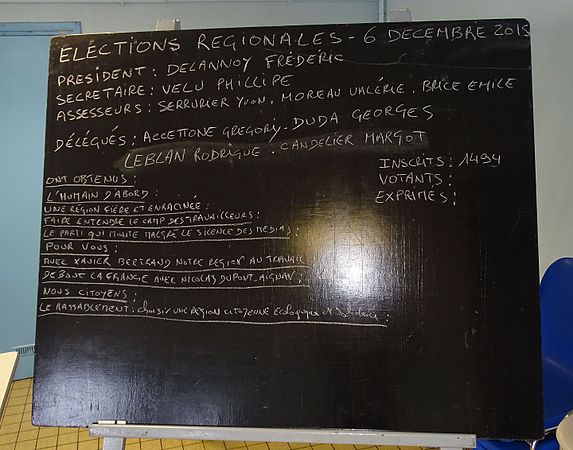 ELÉCTIONS REGIONALES - 6 DECEMBRE 2015
PRESIDENT : DELANNOY FRÉDÉRIC
SECRETAIRE : VELU PHILLIPE
ASSESSEURS : SERRURIER YVON, MOREAU VALÉRIE, BRICE EMILE
DÉLÉGUÉS : ACCETTONE GREGORY - DUDA GEORGES
LEBLAN RODRIGUE . CANDELIER MARGOT
INSCRITS : 1494
VOTANTS :
EXPRIMÉS :
ONT OBTENUS :
L'HUMAIN D'ABORD :
UNE RÉGION FIÈRE ET ENRACINÉE :
FAIRE ENTENDRE LE CAMP DES TRAVAILLEURS :
LE PARTI QUI MILITE MALGRÉ LE SILENCE DES MEDIAS :
POUR VOUS :
AVEC XAVIER BERTRAND NOTRE REGION AU TRAVAIL
DEBOUT LA FRANCE AVEC NICOLAS DUPONT-AIGNAN :
NOUS CITOYENS :
LE RASSEMBLEMENT : choisir UNE RÉGION CITOYENNE Ecologique et Solidaire :